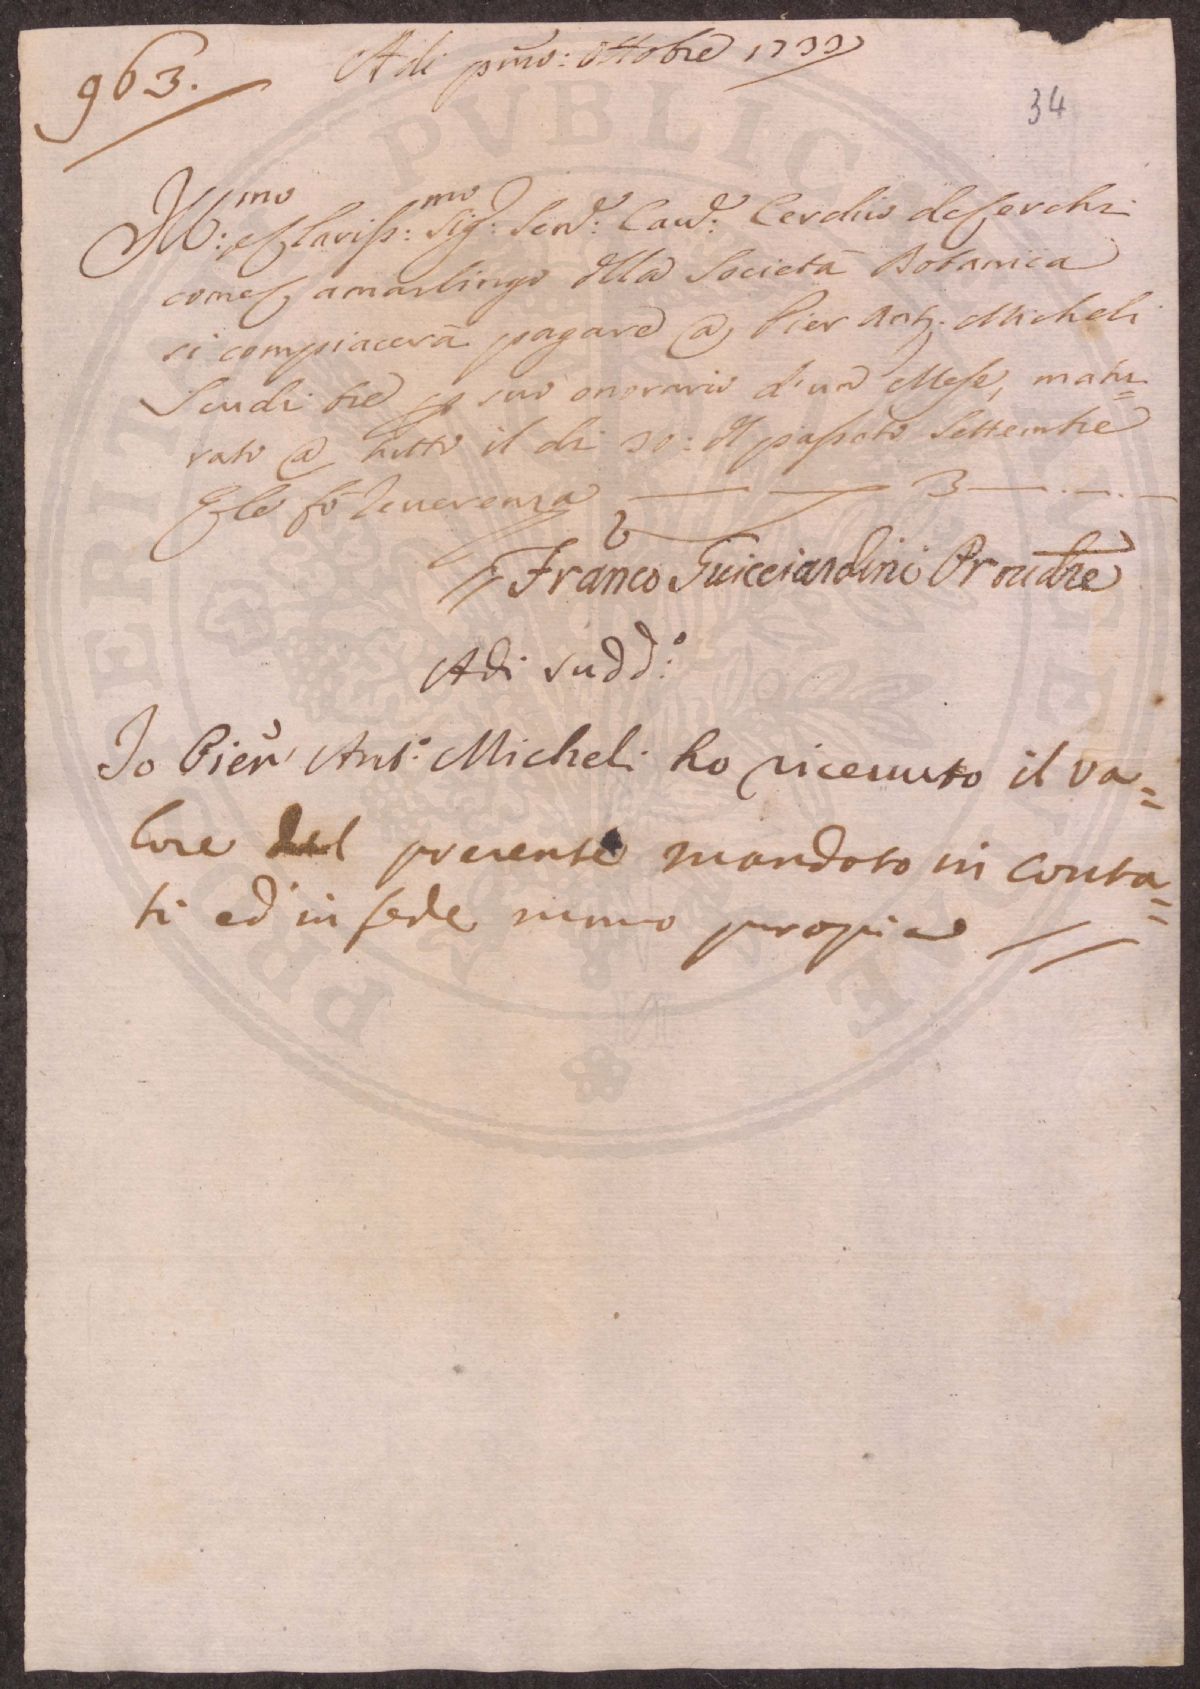 963.
Adi pmo: Ottobre 1733
34
Ill:mo e Clariss:mo Sig: Sen: Cav: Cerchio de Cerchi
come Camarlingo della Società Botanica
si compiacerà pagare a Pier Ant: Micheli
Scudi tre p suo onorario d'un Mese, matu-
rato a tutto il dì 30: del passato Settembre
E le fo Reverenza 3
Franco Guicciardini Provdre
Adi sudd:o
Io Pier Ant:o Micheli ho riceuuto il va=
lore del presente mandato in conta=
ti ed in fede mano propia